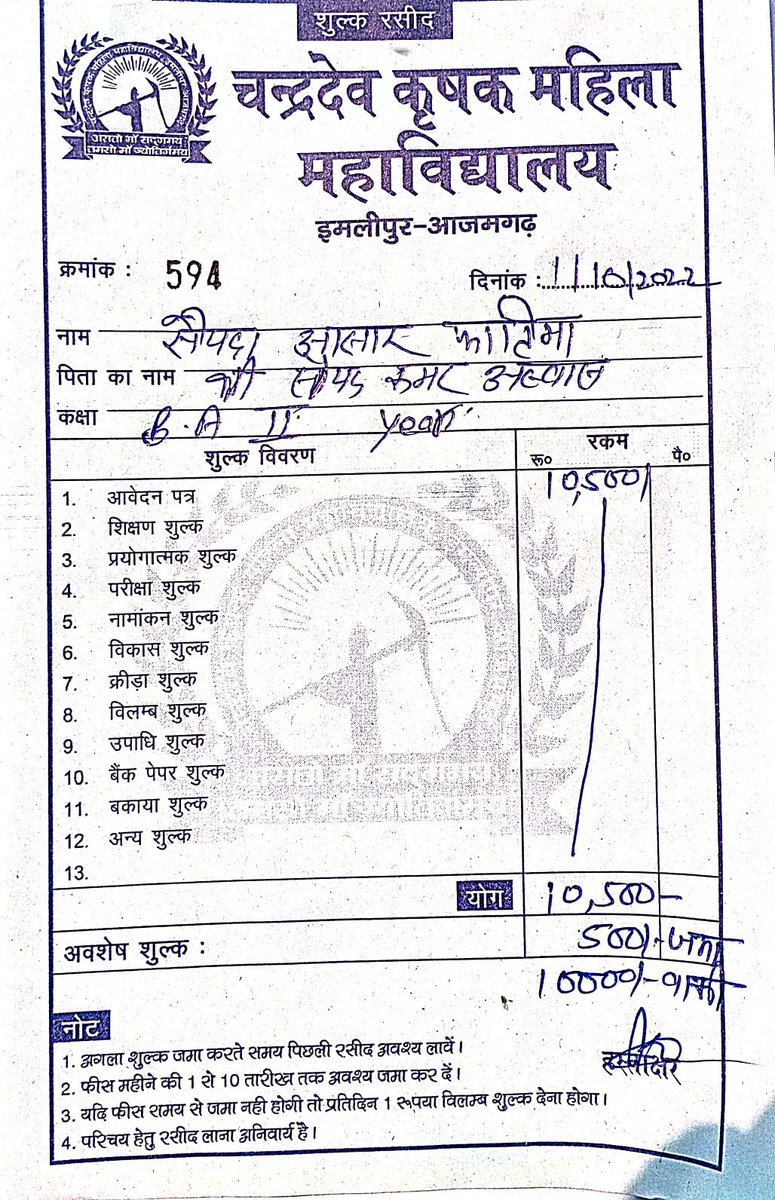 शुल्क रसीद
चन्द्रदेव कृषक महिला
महाविद्यालय
असतो मॉ सद्गमय
तमसो मॉ ज्योतिर्गमय
इमलीपुर-आजमगढ़
क्रमांक : 594 दिनांक : 1/10/2022
नाम सैयदा फातिमा
पिता का नाम श्री सैयद कमर अब्बास
कक्षा B.A II year
शुल्क विवरण रकम
रू० पै०
1. आवेदन पत्र 10,500/
2. शिक्षण शुल्क
3. प्रयोगात्मक शुल्क
4. परीक्षा शुल्क
5. नामांकन शुल्क
6. विकास शुल्क
7. क्रीड़ा शुल्क
8. विलम्ब शुल्क
9. उपाधि शुल्क
10. बैंक पेपर शुल्क
11. बकाया शुल्क
12. अन्य शुल्क
13.
योग 10,500-
अवशेष शुल्क : 500/- जमा
10000/- बाकी
नोट
1. अगला शुल्क जमा करते समय पिछली रसीद अवश्य लावें।
2. फीस महीने की 1 से 10 तारीख तक अवश्य जमा कर दें।
3. यदि फीस समय से जमा नही होगी तो प्रतिदिन 1 रूपया विलम्ब शुल्क देना होगा।
4. परिचय हेतु रसीद लाना अनिवार्य है।